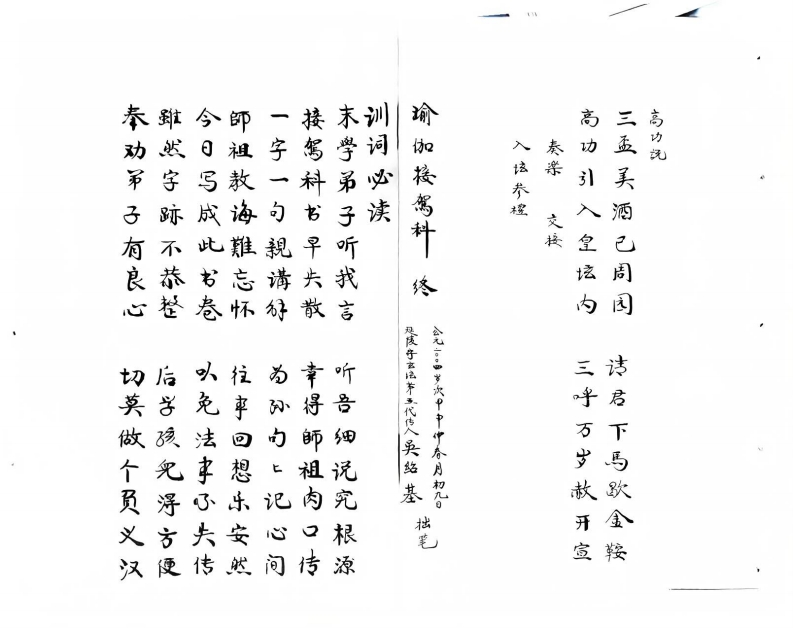 高功说
三盃美酒已周园 请君下馬歇金鞍
高功引入皇坛内 三呼万岁赦开宣
奏樂 交接
入坛参禮
瑜伽接駕科 终
公元二〇〇四岁次甲申仲春月初九日
延陵学玄法第五代传人吴紹基 拙笔
训词必读
末學弟子听我言 听吾细说究根源
接駕科书早失散 幸得師祖肉口传
一字一句親講解 为孙句々记心间
師祖教诲難忘怀 往事回想乐安然
今日写成此书卷 以免法事不失传
雖然字跡不恭整 后学孩兒得方便
奉劝弟子有良心 切莫做个負义汉